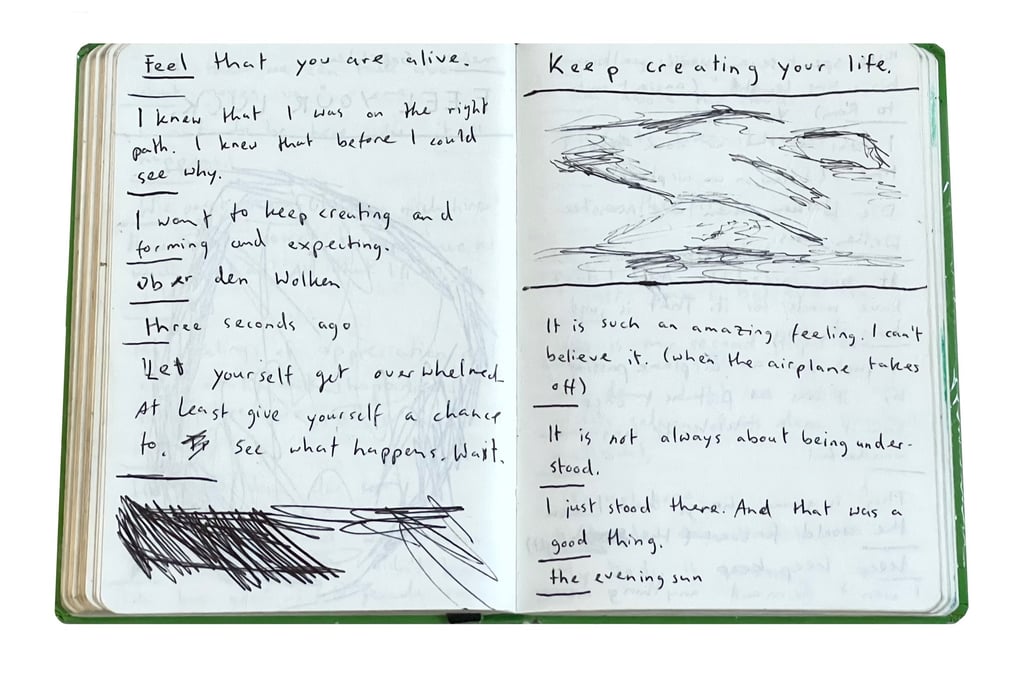 Feel that you are alive.
I knew that I was on the right
path. I knew that before I could
see why.
I want to keep creating and
forming and expecting.
über den Wolken
three seconds ago
Let yourself get overwhelmed
At least give yourself a chance
to. See what happens. Wait.
Keep creating your life.
It is such an amazing feeling. I can't
believe it. (when the airplane takes
off)
It is not always about being under-
stood.
I just stood there. And that was a
good thing.
the evening sun